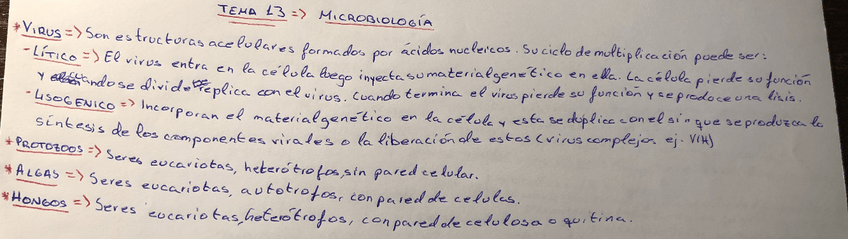 TEMA 13 => MICROBIOLOGÍA
* VIRUS => Son estructuras acelulares formados por ácidos nucleicos. Su ciclo de multiplicación puede ser:
- LÍTICO => El virus entra en la célula luego inyecta su material genético en ella. La célula pierde su función
y cuando se divide se replica con el virus. Cuando termina el virus pierde su función y se produce una lisis.
- LISOGENICO => Incorporan el material genético en la célula y esta se duplica con el sin que se produzca la
síntesis de los componentes virales o la liberación de estos (virus complejos ej. VIH)
* PROTOZOOS => Seres eucariotas, heterótrofos, sin pared celular.
* ALGAS => Seres eucariotas, autotrofos, con pared de celulas.
* HONGOS => Seres eucariotas, heterótrofos, con pared de celulosa o quitina.